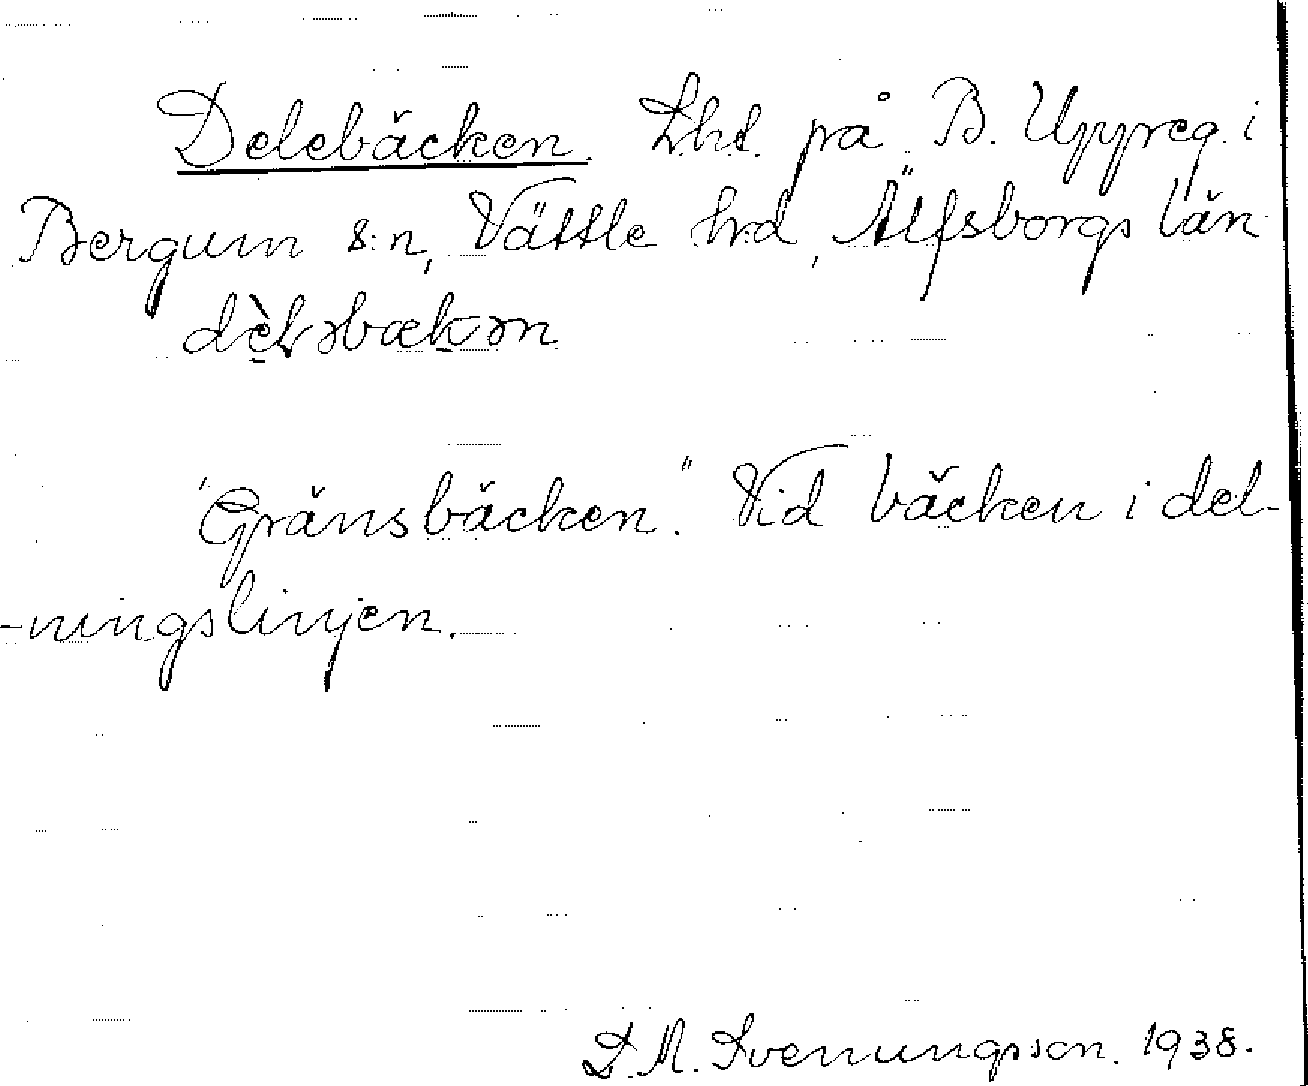 Delebäcken. Lhd. på B. Uppreg. i
Bergum s:n, Vättle hrd, Älfsborgs län
dèləbækən
"Gränsbäcken." Vid bäcken i del-
-ningslinjen.
S. M. Svenungsson. 1938.